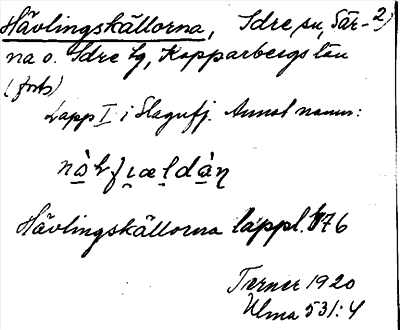 Hävlingskällorna, Idre sn, Sär- 2)
na o. Idre tg, Kopparbergs län
(forts)
Lapp I i Slagufj. Annat namn:
Hävlingskällorna lappl. 76
Turner 1920
Ulma 531:4